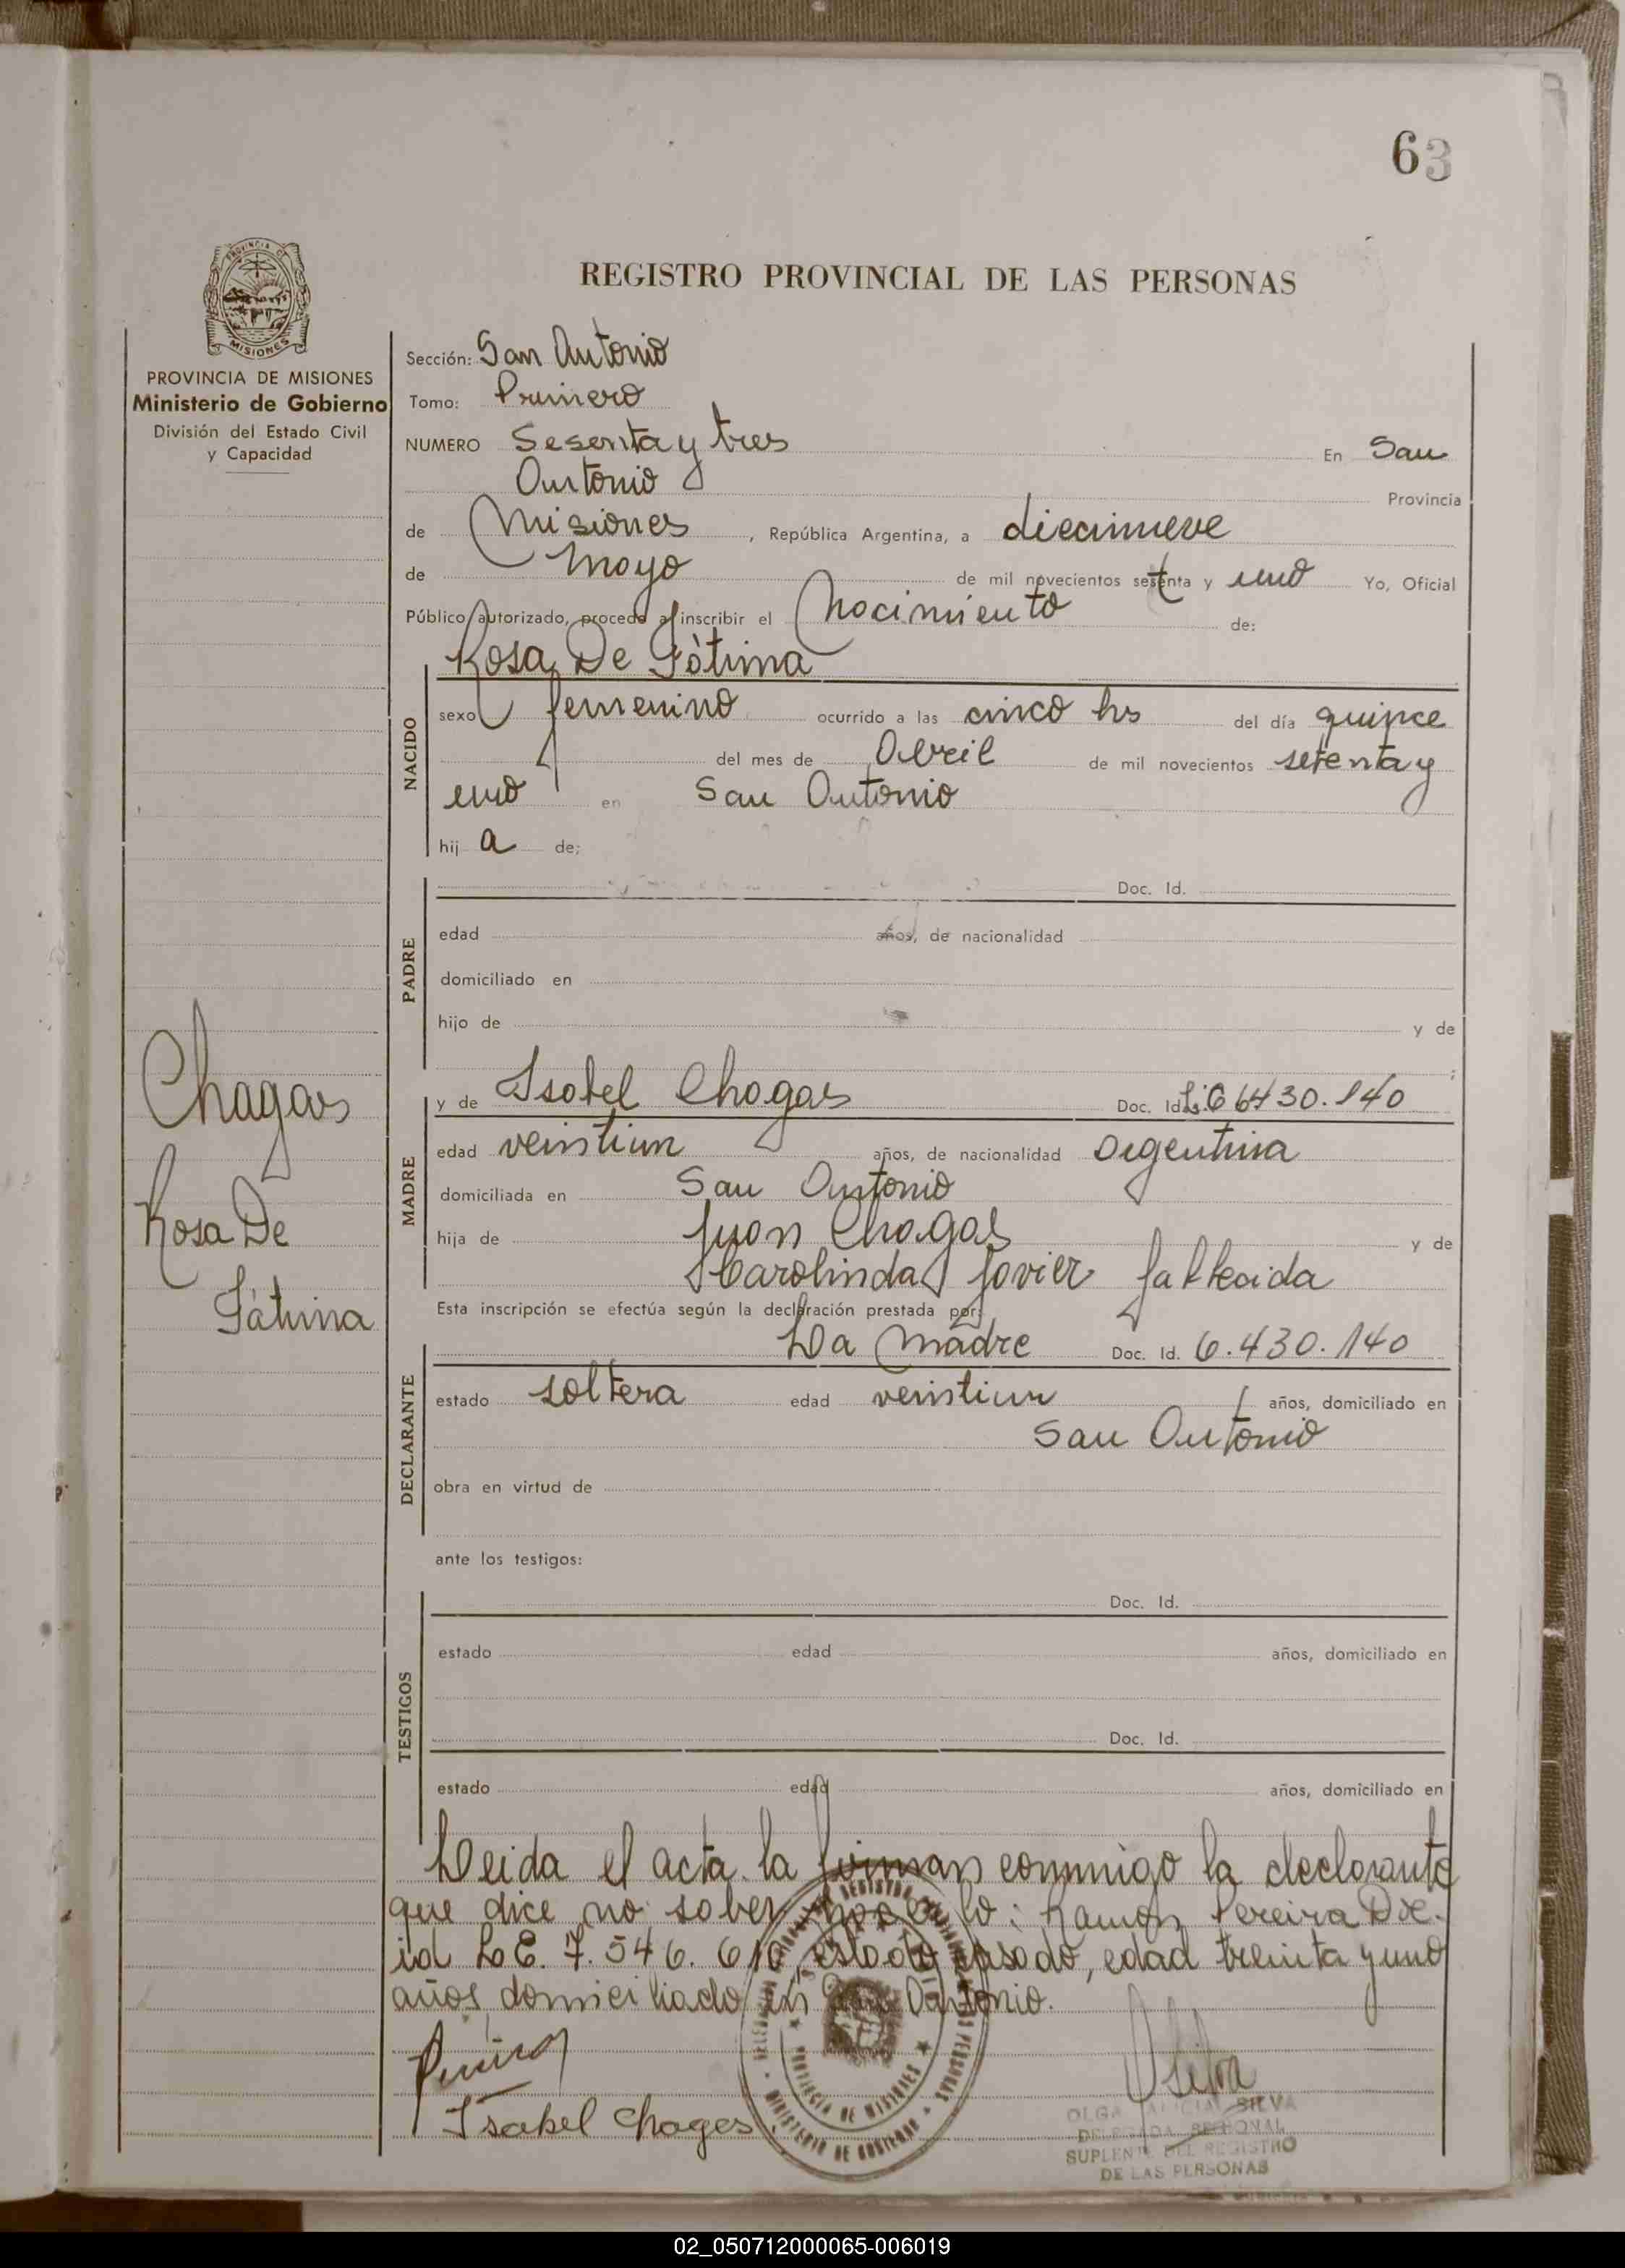 63
REGISTRO PROVINCIAL DE LAS PERSONAS
MISIONES
PROVINCIA DE MISIONES
Ministerio de Gobierno
División del Estado Civil
y Capacidad
Sección: San Antonio
Tomo: Primero
NUMERO Sesenta y tres En San
Antonio Provincia
de Misiones, República Argentina, a diecinueve
de Mayo de mil novecientos setenta y uno Yo, Oficial
Público autorizado, procedo a inscribir el Nacimiento de:
Rosa De Fátima
NACIDO
sexo femenino ocurrido a las cinco hs del día quince
del mes de Abril de mil novecientos setenta y
uno en San Antonio
hij a de;
PADRE
Doc. Id.
edad años, de nacionalidad
domiciliado en
hijo de y de
;
Chagas
Rosa De
Fátima
MADRE
y de Isabel Chagas Doc. Id. L.C 6430.140
edad veintiun años, de nacionalidad Argentina
domiciliada en San Antonio
hija de Juan Chagas y de
Carolinda Javier fallecida
Esta inscripción se efectúa según la declaración prestada por:
DECLARANTE
La Madre Doc. Id. 6.430.140
estado soltera edad veintiun años, domiciliado en
San Antonio
obra en virtud de
ante los testigos:
TESTIGOS
Doc. Id.
estado edad años, domiciliado en
Doc. Id.
estado edad años, domiciliado en
Leida el acta la firman conmigo la declarante
que dice no saber hacerlo: Ramon Pereira Doc.
id L.E. 7.546.610, estado casado, edad treinta y uno
años domiciliado en San Antonio.
Isabel Chages
OLGA ALICIA SILVA
DELEGADA REGIONAL
SUPLENTE DEL REGISTRO
DE LAS PERSONAS
PROVINCIA DE MISIONES
MINISTERIO DE GOBIERNO
02_050712000065-006019